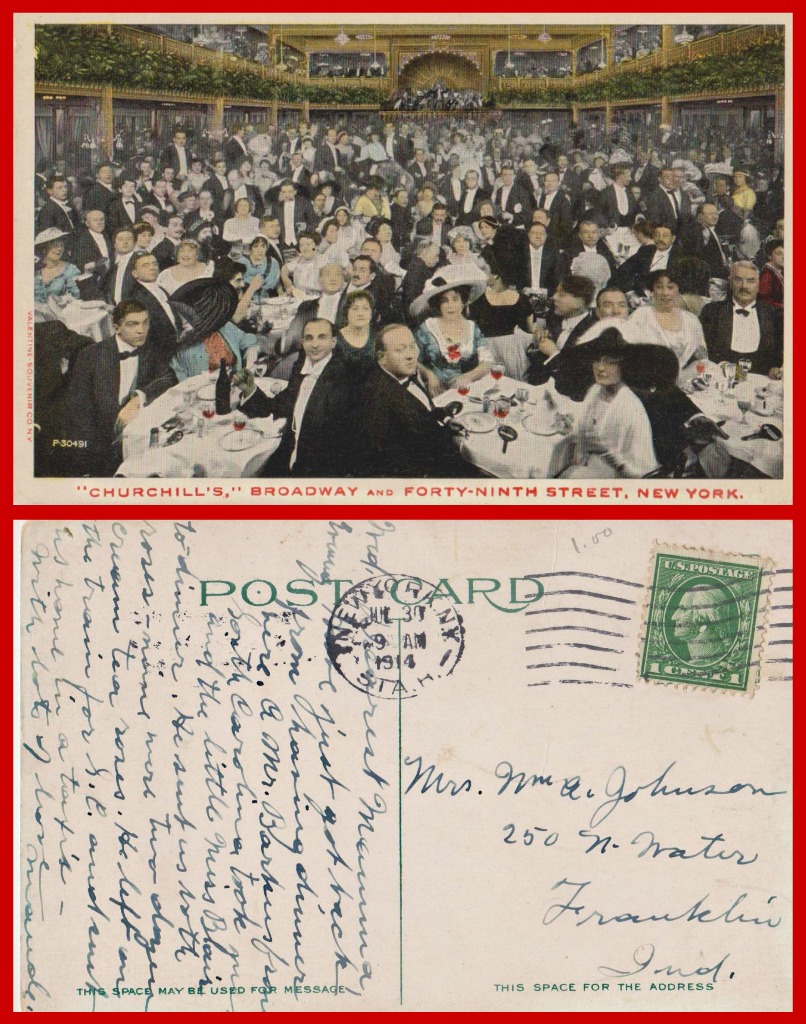 VALENTINE-SOUVENIR CO. N.Y.
P-30491
"CHURCHILL'S," BROADWAY AND FORTY-NINTH STREET, NEW YORK.
1.00
POST CARD
NEW YORK, N.Y.
JUL 30
9 AM
1914
STA. H.
U.S. POSTAGE
1 CENT 1
Wed.
Dearest Mamma,
just got back
from having dinner
here. A Mr. Barkus from
South Carolina took me
and the little Miss Blair
to dinner. He sent us both
roses - mine were two dozen
cream tea roses. He left on
the train for S.C. and sent
us home in a taxi -
With lots of love
Maude.
Mrs. Wm A. Johnson
250 N. Water
Franklin
Ind.
THIS SPACE MAY BE USED FOR MESSAGE
THIS SPACE FOR THE ADDRESS